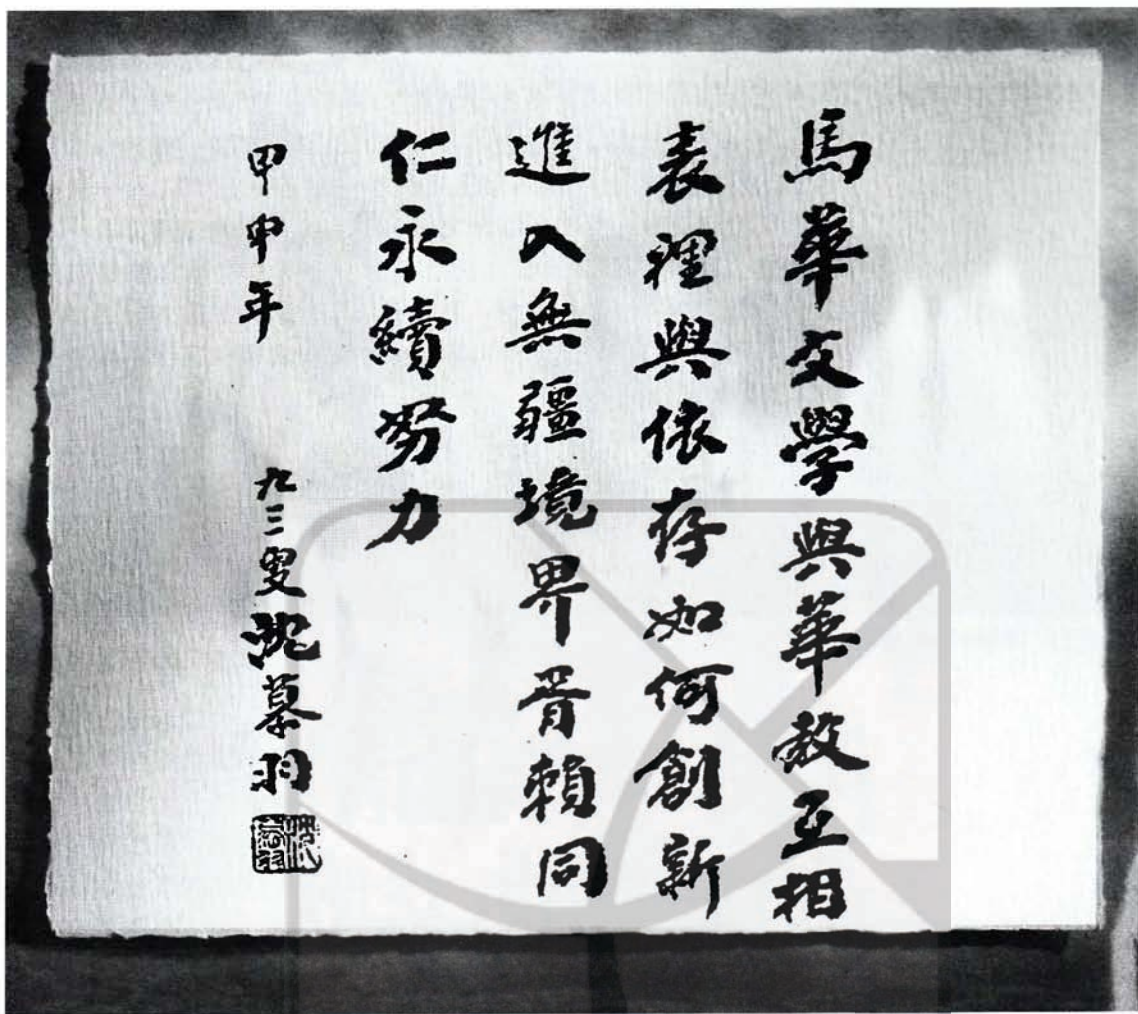 馬華文學與華教互相
表裡與依存如何創新
進入無疆境界胥賴同
仁永續努力
甲申年
九三叟沈慕羽